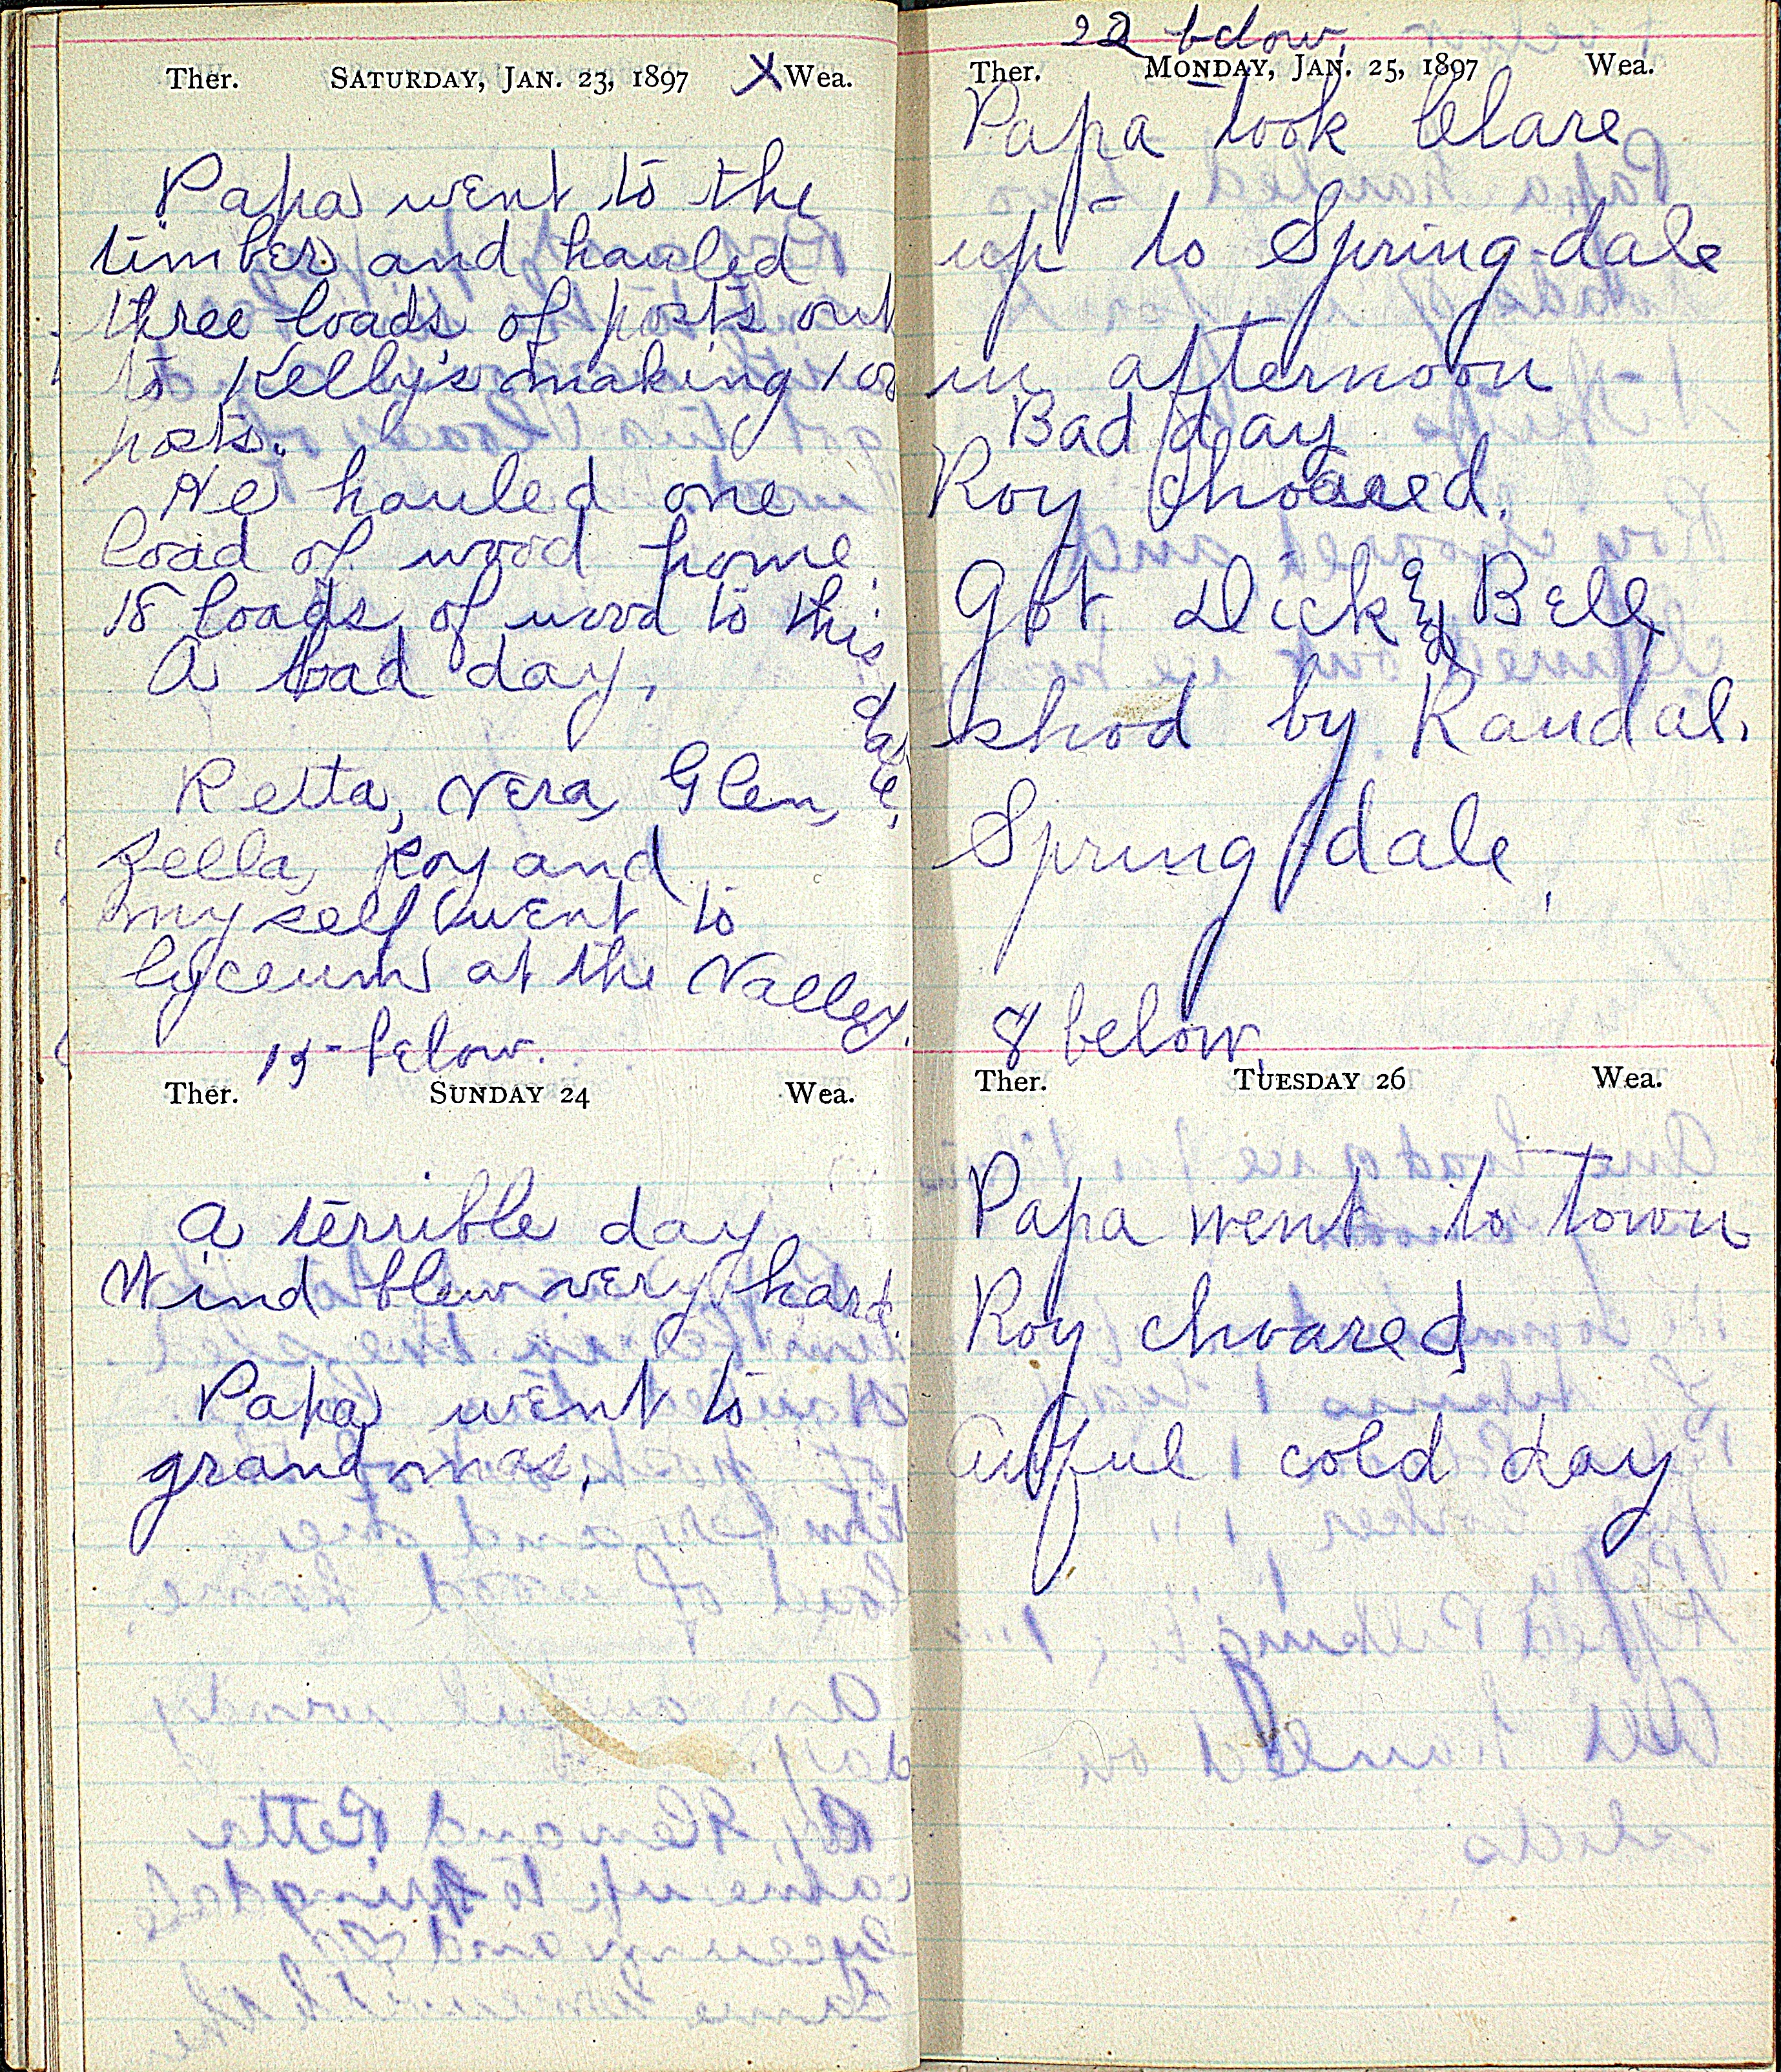 Ther. SATURDAY, JAN. 23, 1897 X Wea.
Papa went to the
timber and hauled
three loads of posts out
to Kelly's making 100
posts.
He hauled one
load of wood home.
18 loads of wood to this
date.
A bad day.
Retta, Vera, Glen,
Zella, Roy and
myself went to
lyceum at the Valley.
15- below.
Ther. SUNDAY 24 Wea.
A terrible day
Wind blew very hard.
Papa went to
grandmas.
22 below.
Ther. MONDAY, JAN. 25, 1897 Wea.
Papa took Clare
up to Spring-dale
in afternoon
Bad day
Roy choared.
Got Dick & Bell
shod by Randal.
Spring dale.
8 below.
Ther. TUESDAY 26 Wea.
Papa went to town
Roy choared
Awful cold day